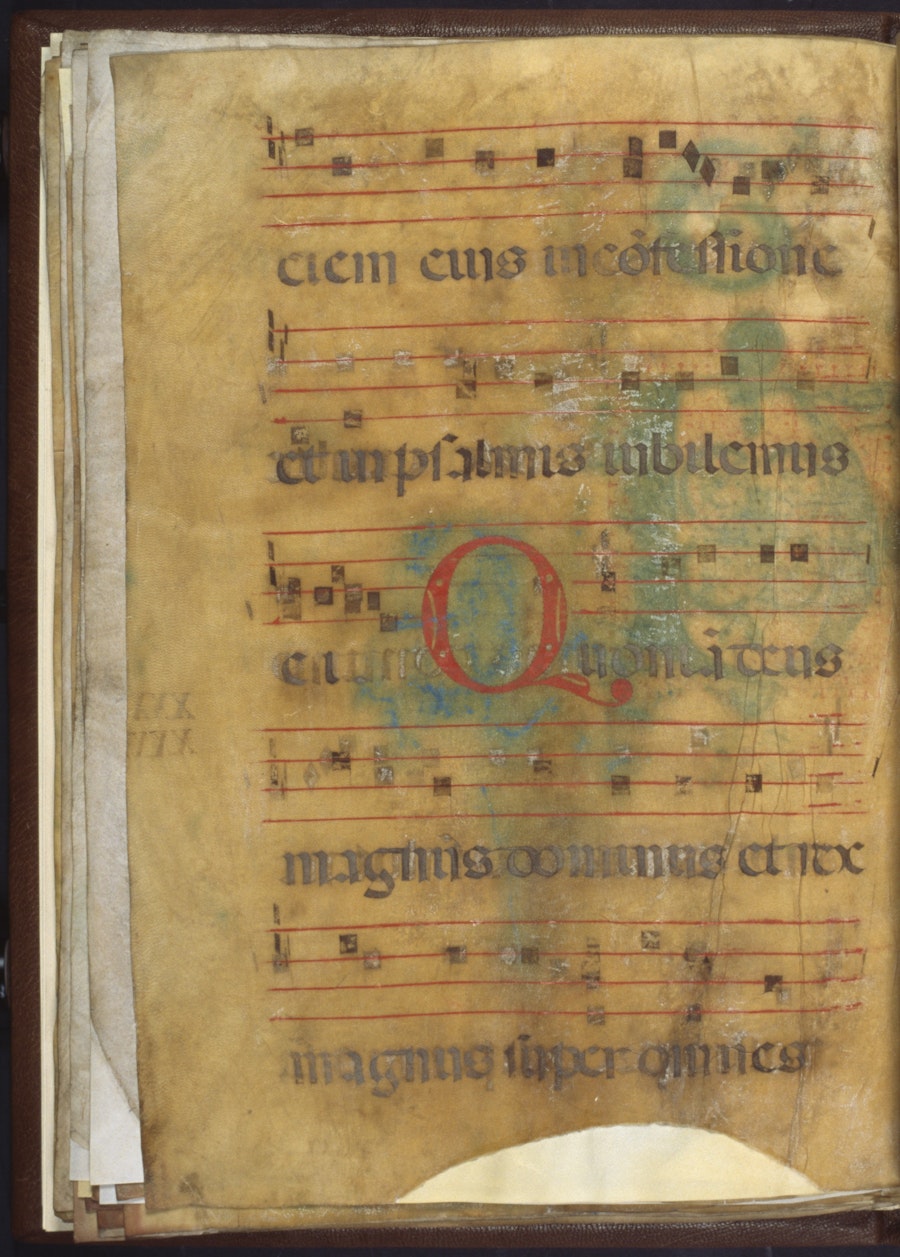 ciem eius in cõfessione
et in psalmis iubilemus
ei Quoniã deus
magnus dominus et rex
magnus super omnes